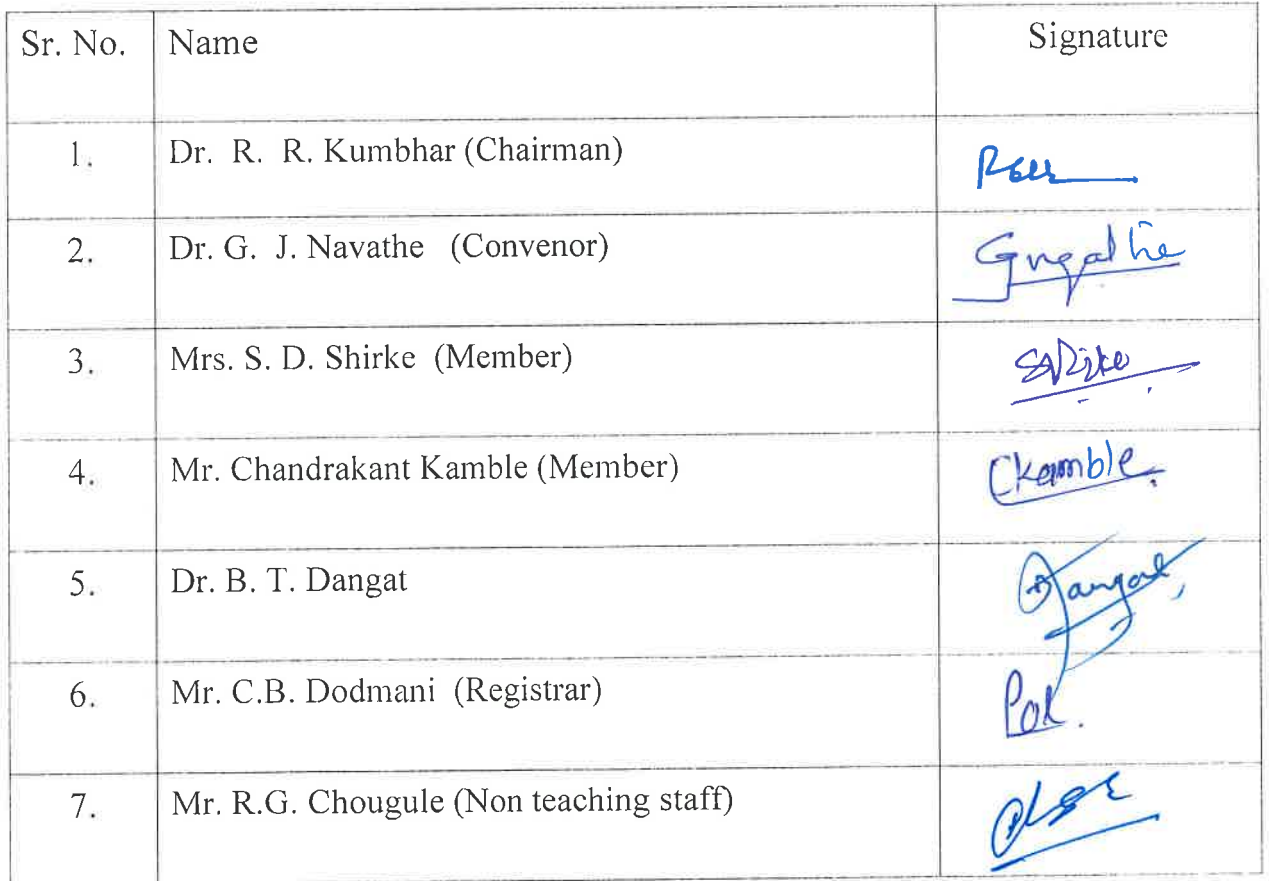 Sr. No. Name Signature
1. Dr. R. R. Kumbhar (Chairman)
2. Dr. G. J. Navathe (Convenor)
3. Mrs. S. D. Shirke (Member)
4. Mr. Chandrakant Kamble (Member) CKamble
5. Dr. B. T. Dangat Dangat
6. Mr. C.B. Dodmani (Registrar)
7. Mr. R.G. Chougule (Non teaching staff)